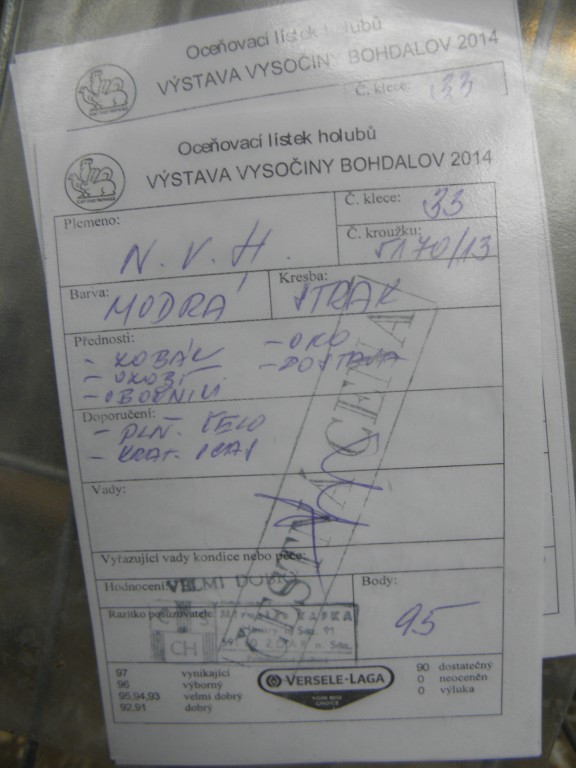 Oceňovací lístek holubů
VÝSTAVA VYSOČINY BOHDALOV 2014
Č. klece: 33
Oceňovací lístek holubů
VÝSTAVA VYSOČINY BOHDALOV 2014
Plemeno: N. V. H.
Č. klece: 33
Č. kroužku: 5170/13
Barva: MODRÁ
Kresba:
Přednosti:
- ZOBÁK - OKO
- OZOBÍ - POSTAVA
- OBOČNICI
Doporučení:
- PLN. ČELO
- KRAT.
Vady:
ČESTNÁ CENA
Vyřazující vady kondice nebo péče:
Hodnocení: VELMI DOBRÝ
Body: 95
Razítko posuzovatele:
CH
97 vynikající
96 výborný
95,94,93 velmi dobrý
92,91 dobrý
VERSELE-LAGA
90 dostatečný
0 neoceněn
0 výluka